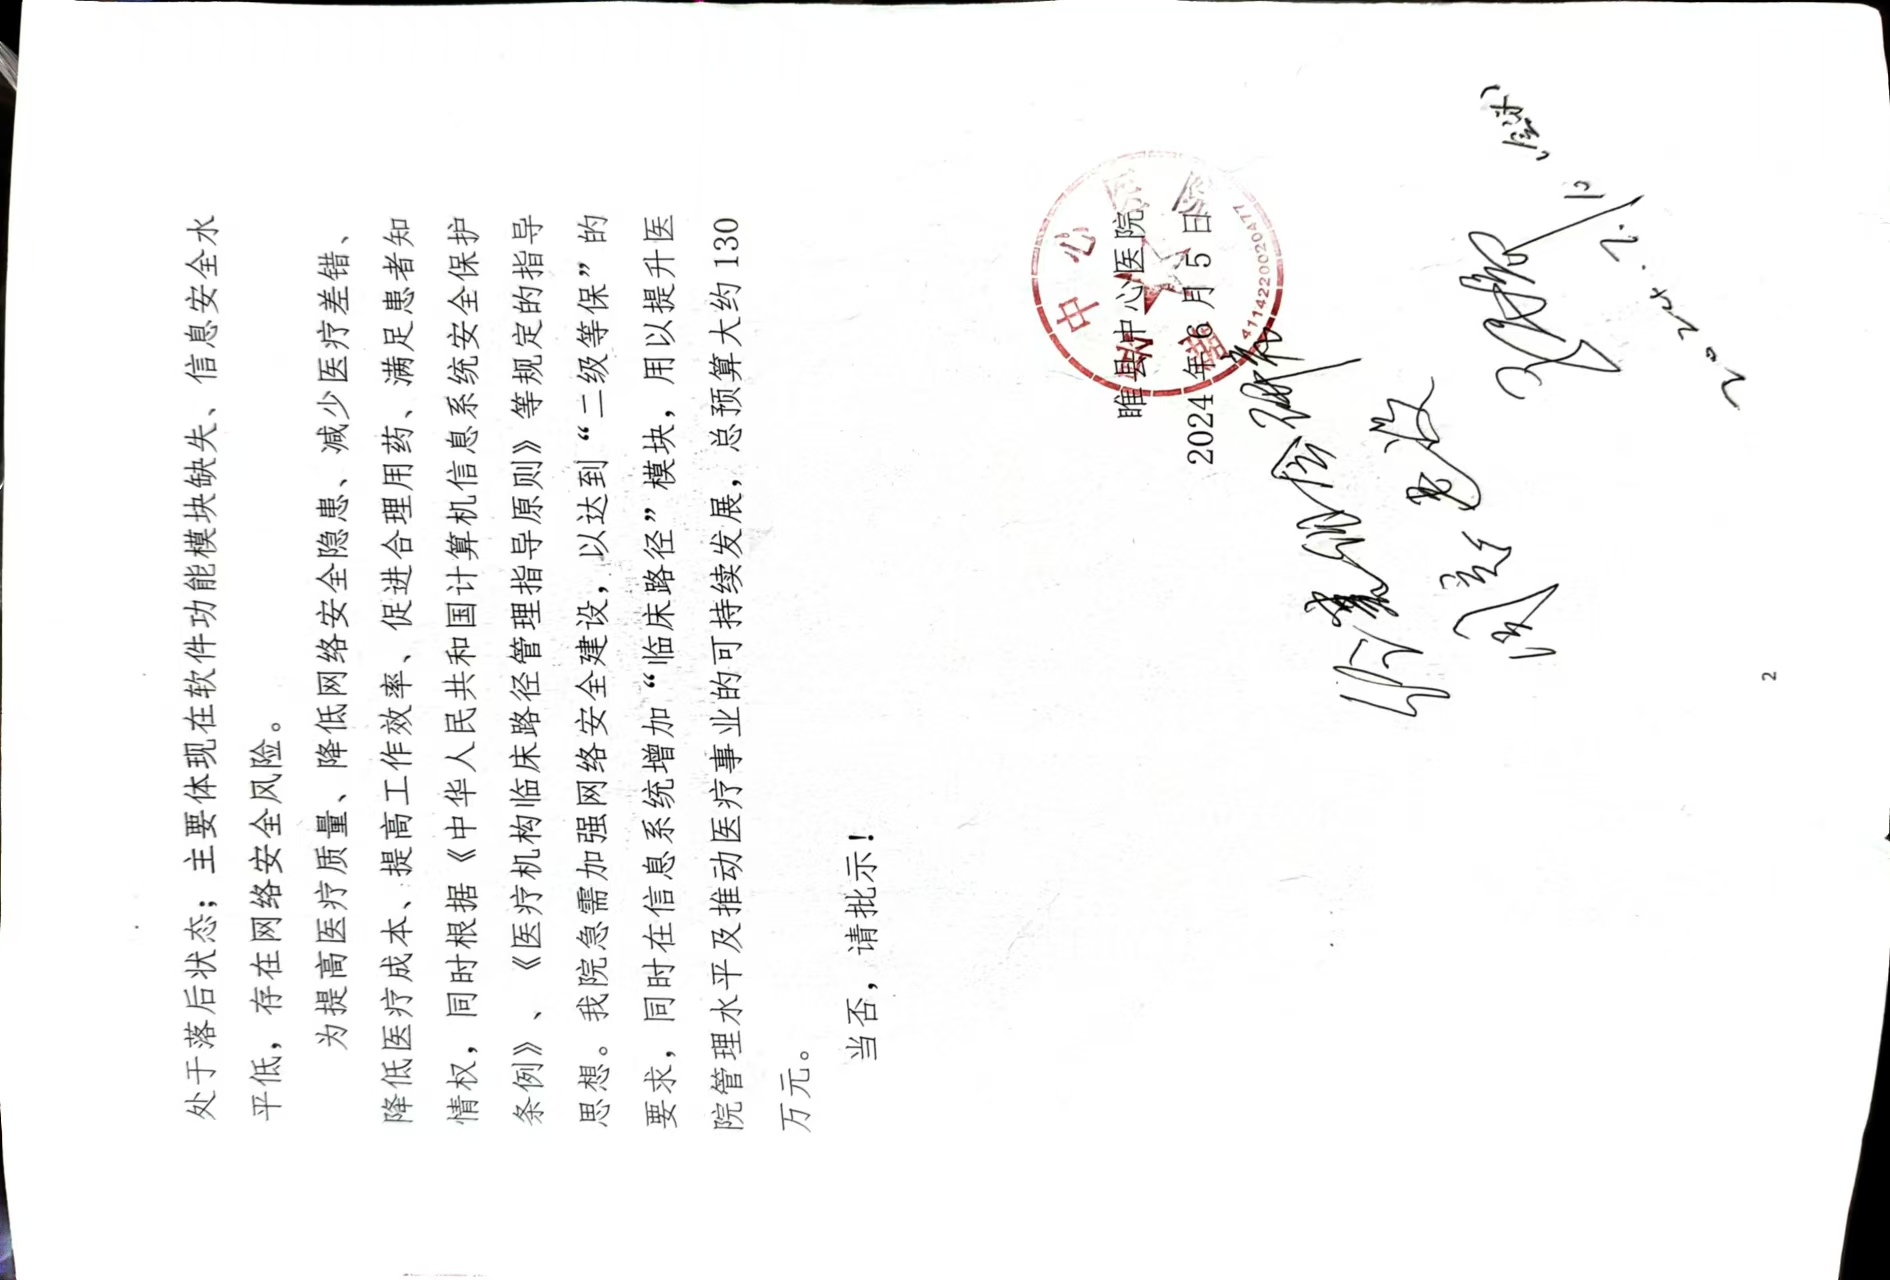 处于落后状态；主要体现在软件功能模块缺失、信息安全水
平低，存在网络安全风险。
为提高医疗质量、降低网络安全隐患、减少医疗差错、
降低医疗成本、提高工作效率、促进合理用药、满足患者知
情权，同时根据《中华人民共和国计算机信息系统安全保护
条例》、《医疗机构临床路径管理指导原则》等规定的指导
思想。我院急需加强网络安全建设，以达到“二级等保”的
要求，同时在信息系统增加“临床路径”模块，用以提升医
院管理水平及推动医疗事业的可持续发展，总预算大约 130
万元。
当否，请批示！
睢县中心医院
2024 年 6 月 5 日
睢县中心医院
4114220020477
2024.7.2
2